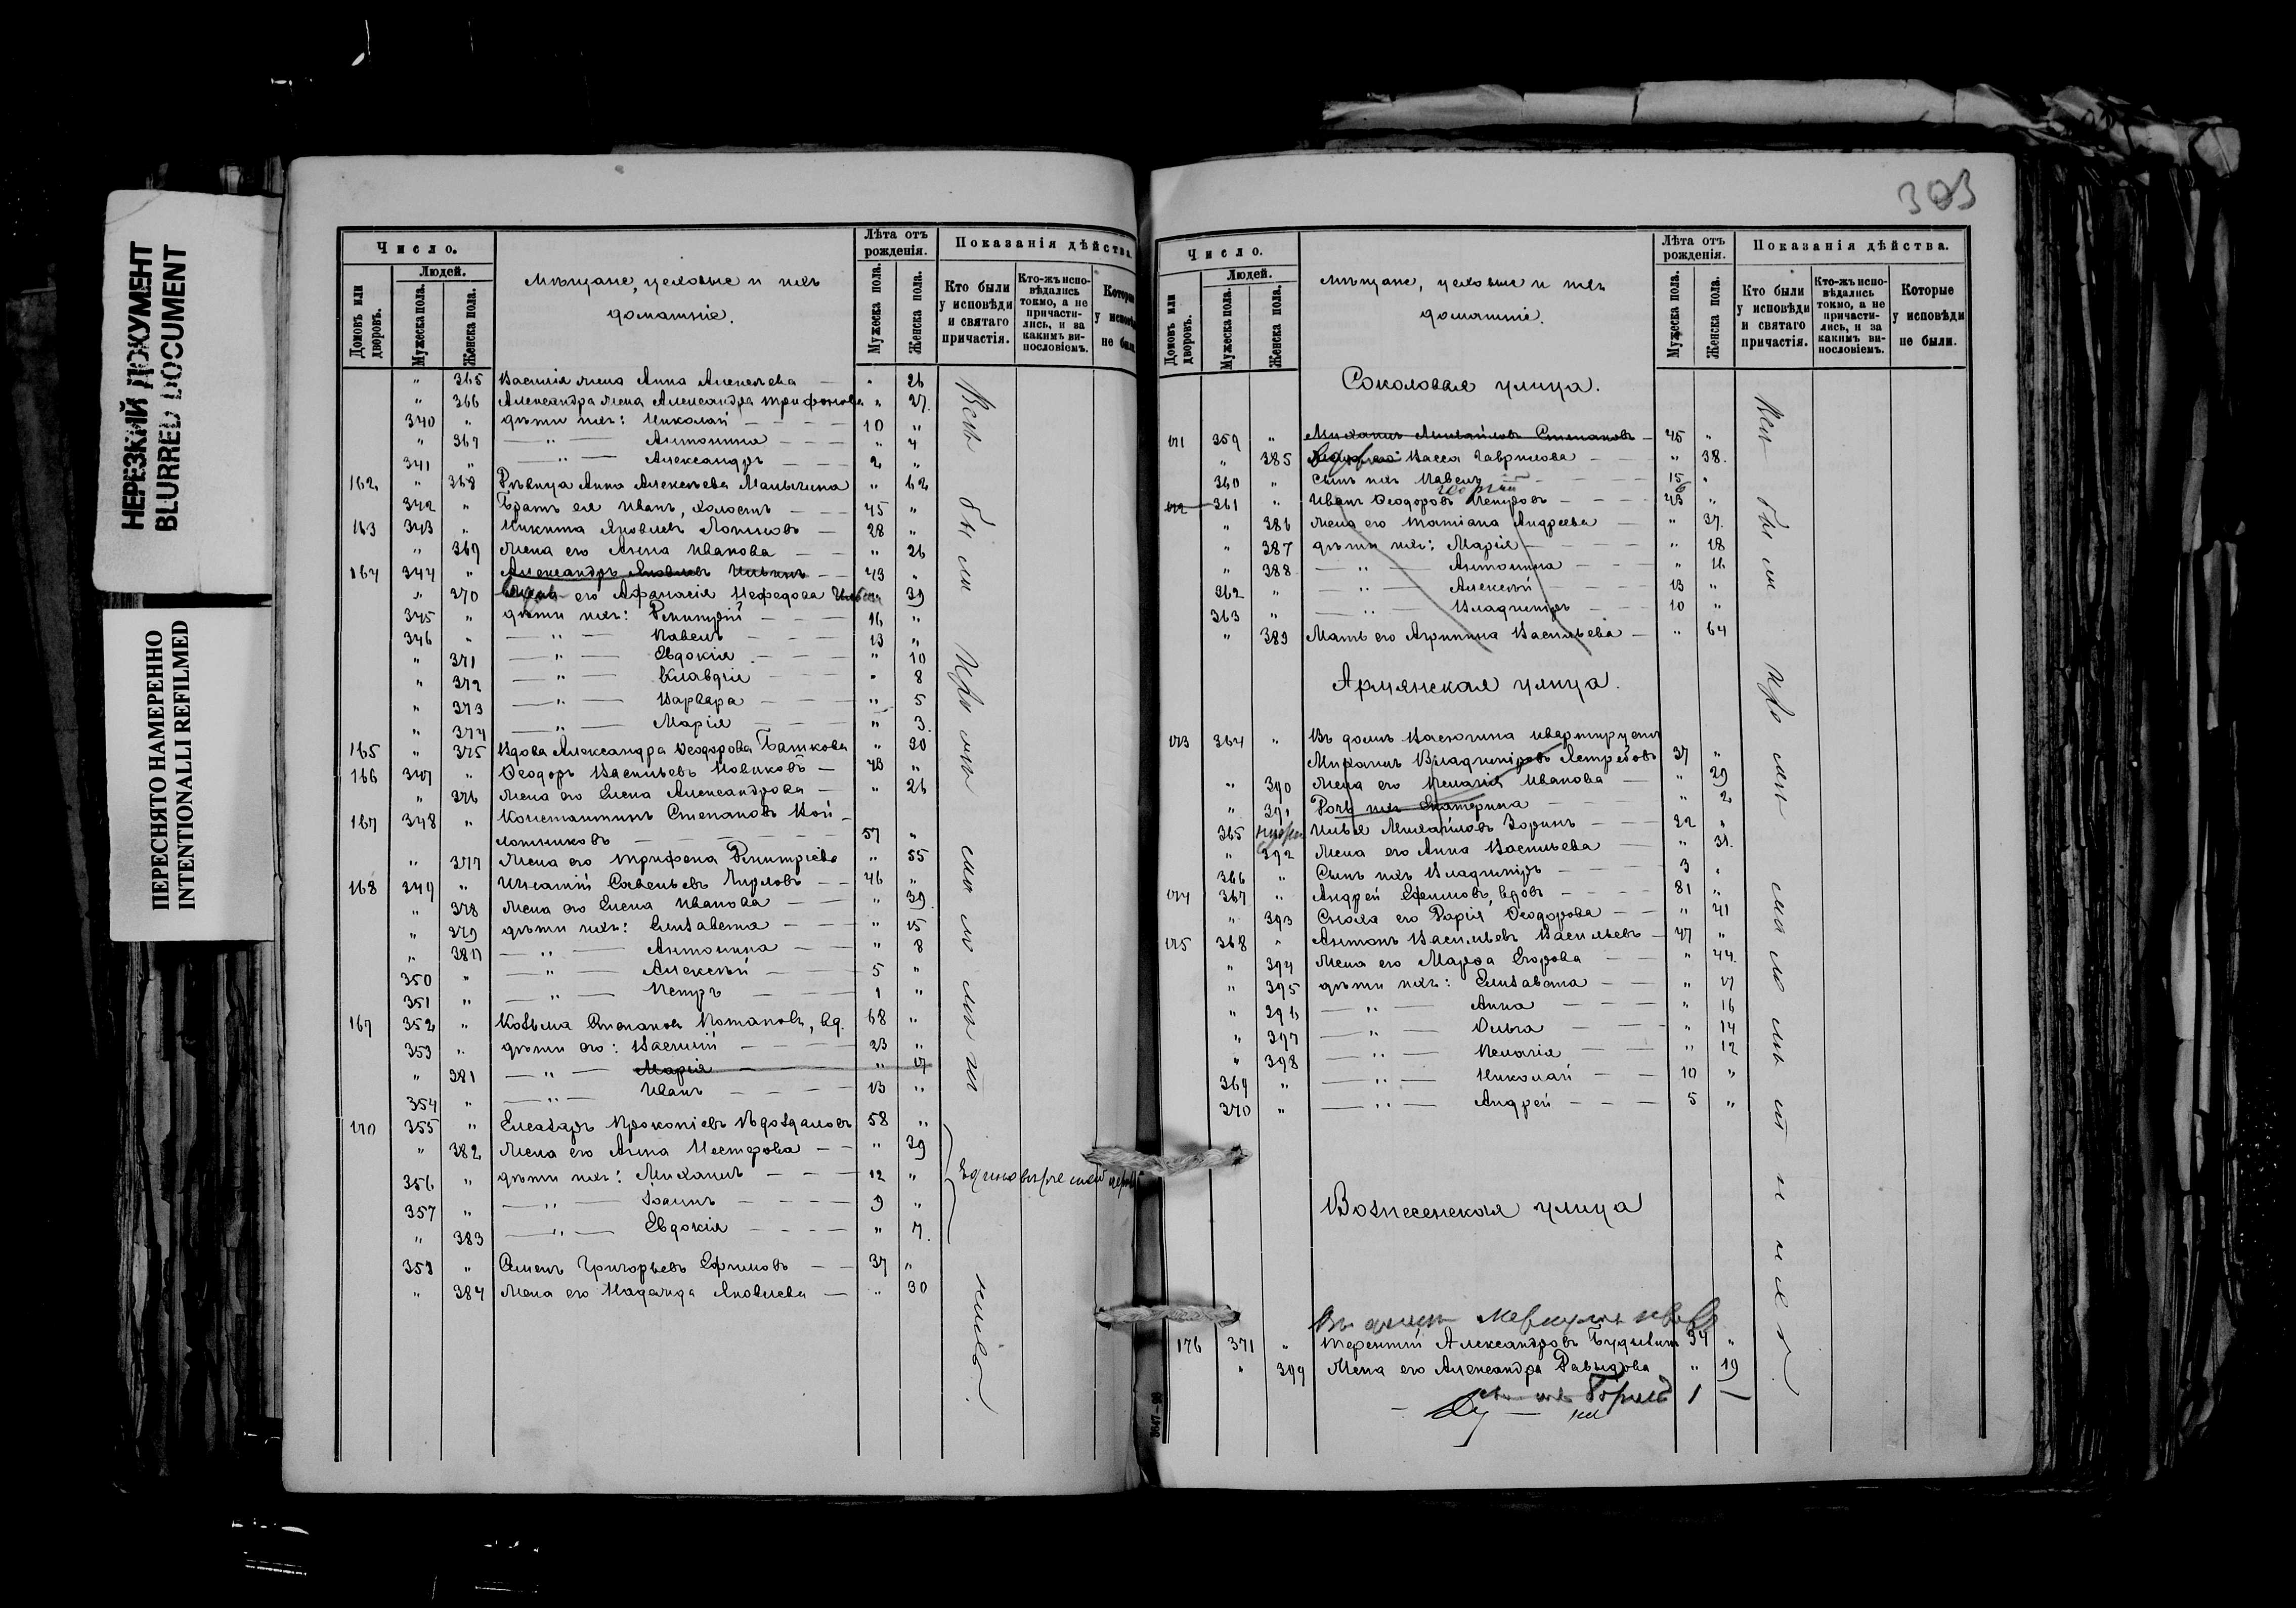 НЕРЕЗКИЙ ДОКУМЕНТ
BLURRED DOCUMENT
ПЕРЕСНЯТО НАМЕРЕННО
INTENTIONALLI REFILMED
Число.
Людей.
Домовъ или дворовъ.
Мужеска пола.
Женска пола.
Мѣщане, цеховые и ихъ
домашніе.
Лѣта отъ рожденія.
Мужеска пола.
Женска пола.
Показанія дѣйства.
Кто были у исповѣди и святаго причастія.
Кто-жъ исповѣдались токмо, а не причастились, и за какимъ винословіемъ.
Которые у исповѣди не были.
" 365 Василія жена Анна Алексѣева — " 26
" 366 Александра жена Александра Трифонова " 27.
340 " дѣти ихъ: Николай — 10 "
" 367 — " — Антонина — " 4
341 " — " — Александръ — 2 "
162 " 368 Дѣвица Анна Алексѣева Малыгина " 62
342 " Братъ ея Иванъ, холостъ — 45 "
163 343 " Никита Яковлевъ Логиновъ — 28 "
" 369 Жена его Анна Иванова — " 26
164 344 " Александръ Яковлевъ Ильинъ — 43 "
" 370 его Афанасія Нефедова " 39
345 " дѣти ихъ: Димитрій — 16 "
346 " — " — Павелъ — 13 "
" 371 — " — Евдокія — " 10
" 372 — " — Клавдія — " 8
" 373 — " — Варвара — " 5
" 374 — " — Марія — " 3
165 " 375 Вдова Александра Ѳеодорова Башкова " 30
166 347 " Ѳеодоръ Васильевъ Новиковъ — 43 "
" 376 Жена его Елена Александрова — " 26
167 348 " Константинъ Степановъ Вой-
лошниковъ — 57 "
" 377 Жена его Трифена Димитріева " 55
168 349 " Игнатій Савельевъ Чирловъ — 46 "
" 378 Жена его Елена Иванова — " 39.
" 379 дѣти ихъ: Елизавета — " 15
" 380 — " — Антонина — " 8
350 " — " — Алексѣй — 5 "
351 " — " — Петръ — 1 "
167 352 " Козьма Степановъ Потаповъ, вд. 68 "
353 " дѣти его: Василій — 23 "
" 381 — " — Марія — " 17
354 " — " — Иванъ — 13 "
170 355 " Елеазаръ Прокопіевъ 58 "
" 382 Жена его Анна Нестерова — " 39
356 " дѣти ихъ: Михаилъ — 12 "
357 " — " — Іоаннъ — 9 "
" 383 — " — Евдокія — " 7.
353 " Семенъ Григорьевъ Ефимовъ — 37 "
" 384 Жена его Надежда Яковлева — " 30
Всѣ бы ли
303
Число.
Людей.
Домовъ или дворовъ.
Мужеска пола.
Женска пола.
Мѣщане, цеховые и ихъ
домашніе.
Лѣта отъ рожденія.
Мужеска пола.
Женска пола.
Показанія дѣйства.
Кто были у исповѣди и святаго причастія.
Кто-жъ исповѣдались токмо, а не причастились, и за какимъ винословіемъ.
Которые у исповѣди не были.
Соколовая улица.
171 359 " Михаилъ Михайловъ Степановъ — 45 "
" 385 Васса Гаврилова — " 38.
360 " Сынъ ихъ Павелъ — 15 "
172 361 " Иванъ Ѳеодоровъ — 43 "
" 386 Жена его Татіана Андреева — " 37.
" 387 дѣти ихъ: Марія — " 18
" 388 — " — Антонина — " 16
362 " — " — Алексѣй — 13 "
363 " — " — Владиміръ — 10 "
" 389 Мать его Агрипина Васильева — " 64
Армянская улица.
173 364 " Въ домѣ Васюгина квартируетъ
Михаилъ Владиміровъ Ястребовъ 37 "
" 390 Жена его Пелагія Иванова — " 29
" 391 Дочь ихъ Екатерина — " 2
365 Илья Михайловъ Зоринъ — 22 "
" 392 Жена его Анна Васильева — " 31.
366 " Сынъ ихъ Владиміръ — 3 "
174 367 " Андрей Ефимовъ, вдовъ — 81 "
" 393 Сноха его Дарія Ѳеодорова — " 41
175 368 " Антонъ Васильевъ Васильевъ — 47 "
" 394 Жена его Марѳа Егорова — " 44.
" 395 дѣти ихъ: Елизавета — " 17
" 396 — " — Анна — " 16
" 397 — " — Ольга — " 14
" 398 — " — Пелагія — " 12
369 " — " — Николай — 10 "
370 " — " — Андрей — 5 "
Вознесенская улица
Въ домѣ
176 371 " Терентій Александровъ 34 "
" 399 Жена его Александра Давыдова " 19
1 —
Всѣ бы ли
3647—96